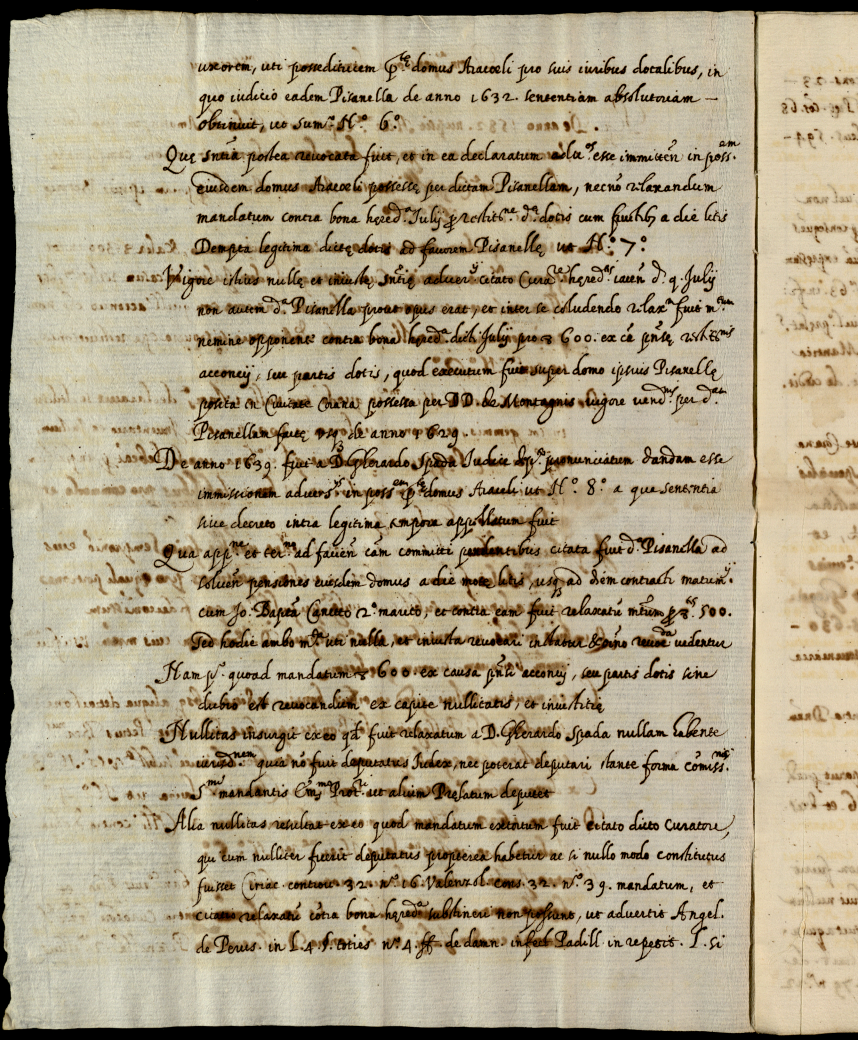 uxorem, uti posseditricem p.tę domus Aracoeli pro suis iuribus dotalibus, in
quo iudicio eadem Pisanella de anno 1632. sententiam absolutoriam –
obtinuit, ut sum.o N.o 6.o
Quę sntia postea revocata fuit, et in ea declaratum esse immitten in poss.am
eiusdem domus Aracoeli possessę per dictam Pisanellam, necnõ relaxandum
mandatum contra bona hęred. Julij restit.ne d.ę dotis cum fructib a die litis
Dempta legitima dictę dotis ad favorem Pisanellę ut N.o 7.o
Vigore istius nullę et iniustę sntię citato Cura.re hęred.is iacen d. q. Julij
non autem d.a Pisanella prout opus erat, et inter se coludendo relax.m fuit m.tum
nemine opponente contra bona hęred. dicti Julij pro 600. ex restit.nis
acconcij, seu partis dotis, quod executum fuit super domo ipsius Pisanellę
posita in Civitate possessa per DD. de Montagnis vigore vend.nis per d.am
Pisanellam factę usq de anno 1629.
De anno 1639. fuit a D. Gherardo Spada Iudice pronunciatum dandam esse
immissionem in poss.em p.tę domus Aracoeli ut N.o 8.o a qua sententia
sive decreto intra legitima tempora appellatum fuit
Qua app.ne et ad cãm committi pendentibus citata fuit d.a Pisanella ad
solven pensiones eiusdem domus a die motę litis, usq ad diem contracti matrim.ij
cum Jo. Bapta 2.o marito, et contra eam fuit relaxatũ mtum p 500.
Sed hodie ambo m.ta uti nulla, et iniusta revocari instatur & videntur
Nam p.o quoad mandatum 600. ex causa acconcij, seu partis dotis sine
dubio est revocandum ex capite nullitatis, et iniustitię
Nullitas insurgit ex eo qd fuit relaxatum a D. Gherardo Spada nullam habente
iurisd.nem quia nõ fuit deputatus Iudex, nec poterat deputari stante forma cõmiss.nis
S.mi mandantis ut alium Prelatum deputet
Alia nullitas resultat ex eo quod mandatum extortum fuit citato dicto Curatore,
qui cum nulliter fuerit deputatus propterea habetur ac si nullo modo constitutus
fuisset Ciriac. controv. 32. n.o 16. Valenzol. cons. 32. n.o 39. mandatum, et
citatio relaxatũ cõtra bona hęred. substineri non possunt, ut advertit Angel.
de Perus. in l. 4. §. toties n.o 4. ff. de damn. infect Padill. in repetit. l. si